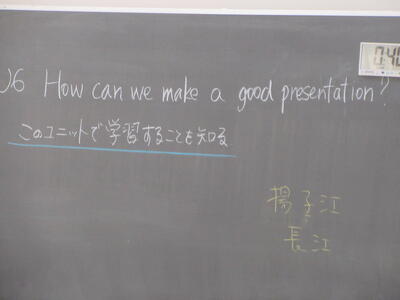 06 How can we make a good presentation?
このユニットで学習することを知る
揚子江
長江